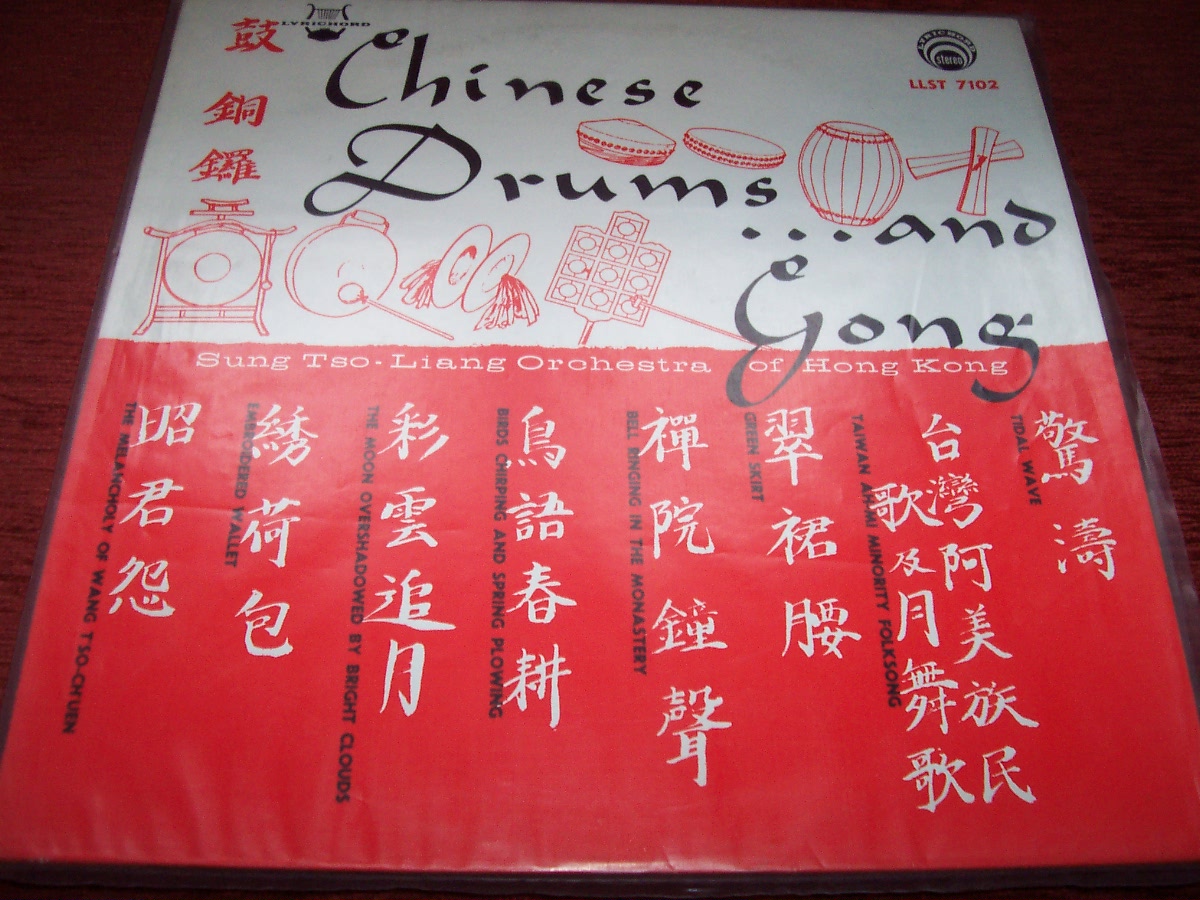 LYRICHORD
鼓
銅鑼
Chinese
Drums
...and
Gong
LYRICHORD
stereo
LLST 7102
Sung Tso-Liang Orchestra of Hong Kong
驚濤
TIDAL WAVE
台灣阿美族民
歌及月舞歌
TAIWAN AH-MI MINORITY FOLKSONG
翠裙腰
GREEN SKIRT
禪院鐘聲
BELL RINGING IN THE MONASTERY
鳥語春耕
BIRDS CHIRPING AND SPRING PLOWING
彩雲追月
THE MOON OVERSHADOWED BY BRIGHT CLOUDS
綉荷包
EMBROIDERED WALLET
昭君怨
THE MELANCHOLY OF WANG TSO-CH'UEN